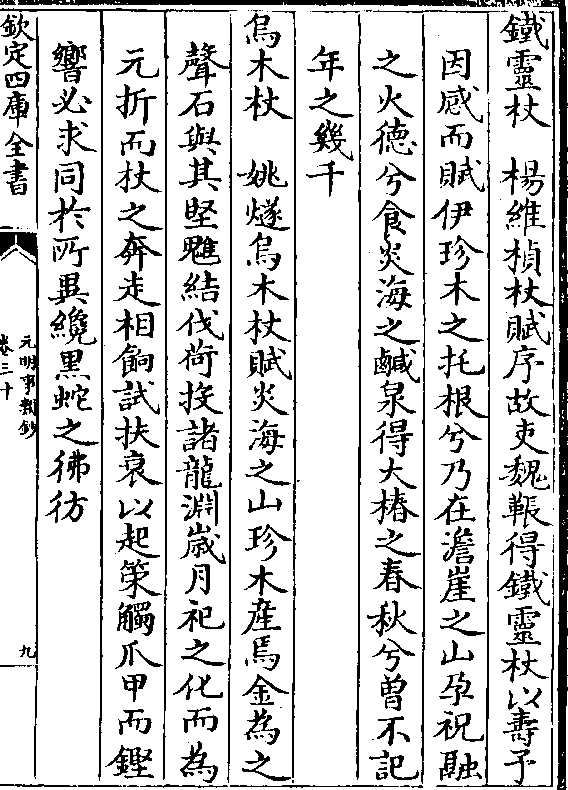 鐵靈杖　楊維楨杖賦序故吏魏䩨得鐵靈杖以壽予
因感而賦伊珍木之托根兮乃在澹崖之山孕祝融
之火德兮食炎海之鹹泉得大椿之春秋兮曽不記
年之幾千
烏木杖　姚燧烏木杖賦炎海之山珍木産焉金為之
聲石與其堅魋結伐荷投諸龍淵歳月祀之化而為
元折而扙之奔走相餉試扶衰以起策觸爪甲而鏗
響必求同於所異纔黒蛇之彿彷
欽定四庫全書
元明事類鈔
卷三十
九